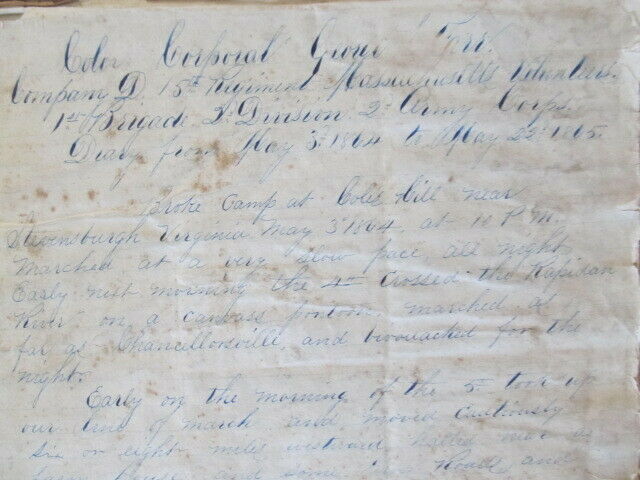 Color Corporal George Fyrr.
Company D 15th Regiment Massachusetts Volunteers.
1st Brigade 2d Division 2d Army Corps.
Diary from May 3d 1864 to May 22d 1865.
Broke Camp at Coles Hill near
Stevensburgh Virginia May 3d 1864, at 10 P.M.
Marched at a very slow pace, all night
Early next morning the 4th crossed the Rapidan
River on a canvass pontoon, marched as
far as Chancellorsville, and bivouacked for the
night.
Early on the morning of the 5th took up
our line of march and moved cautiously
six or eight miles westward halted near a
farm house and some Roads and